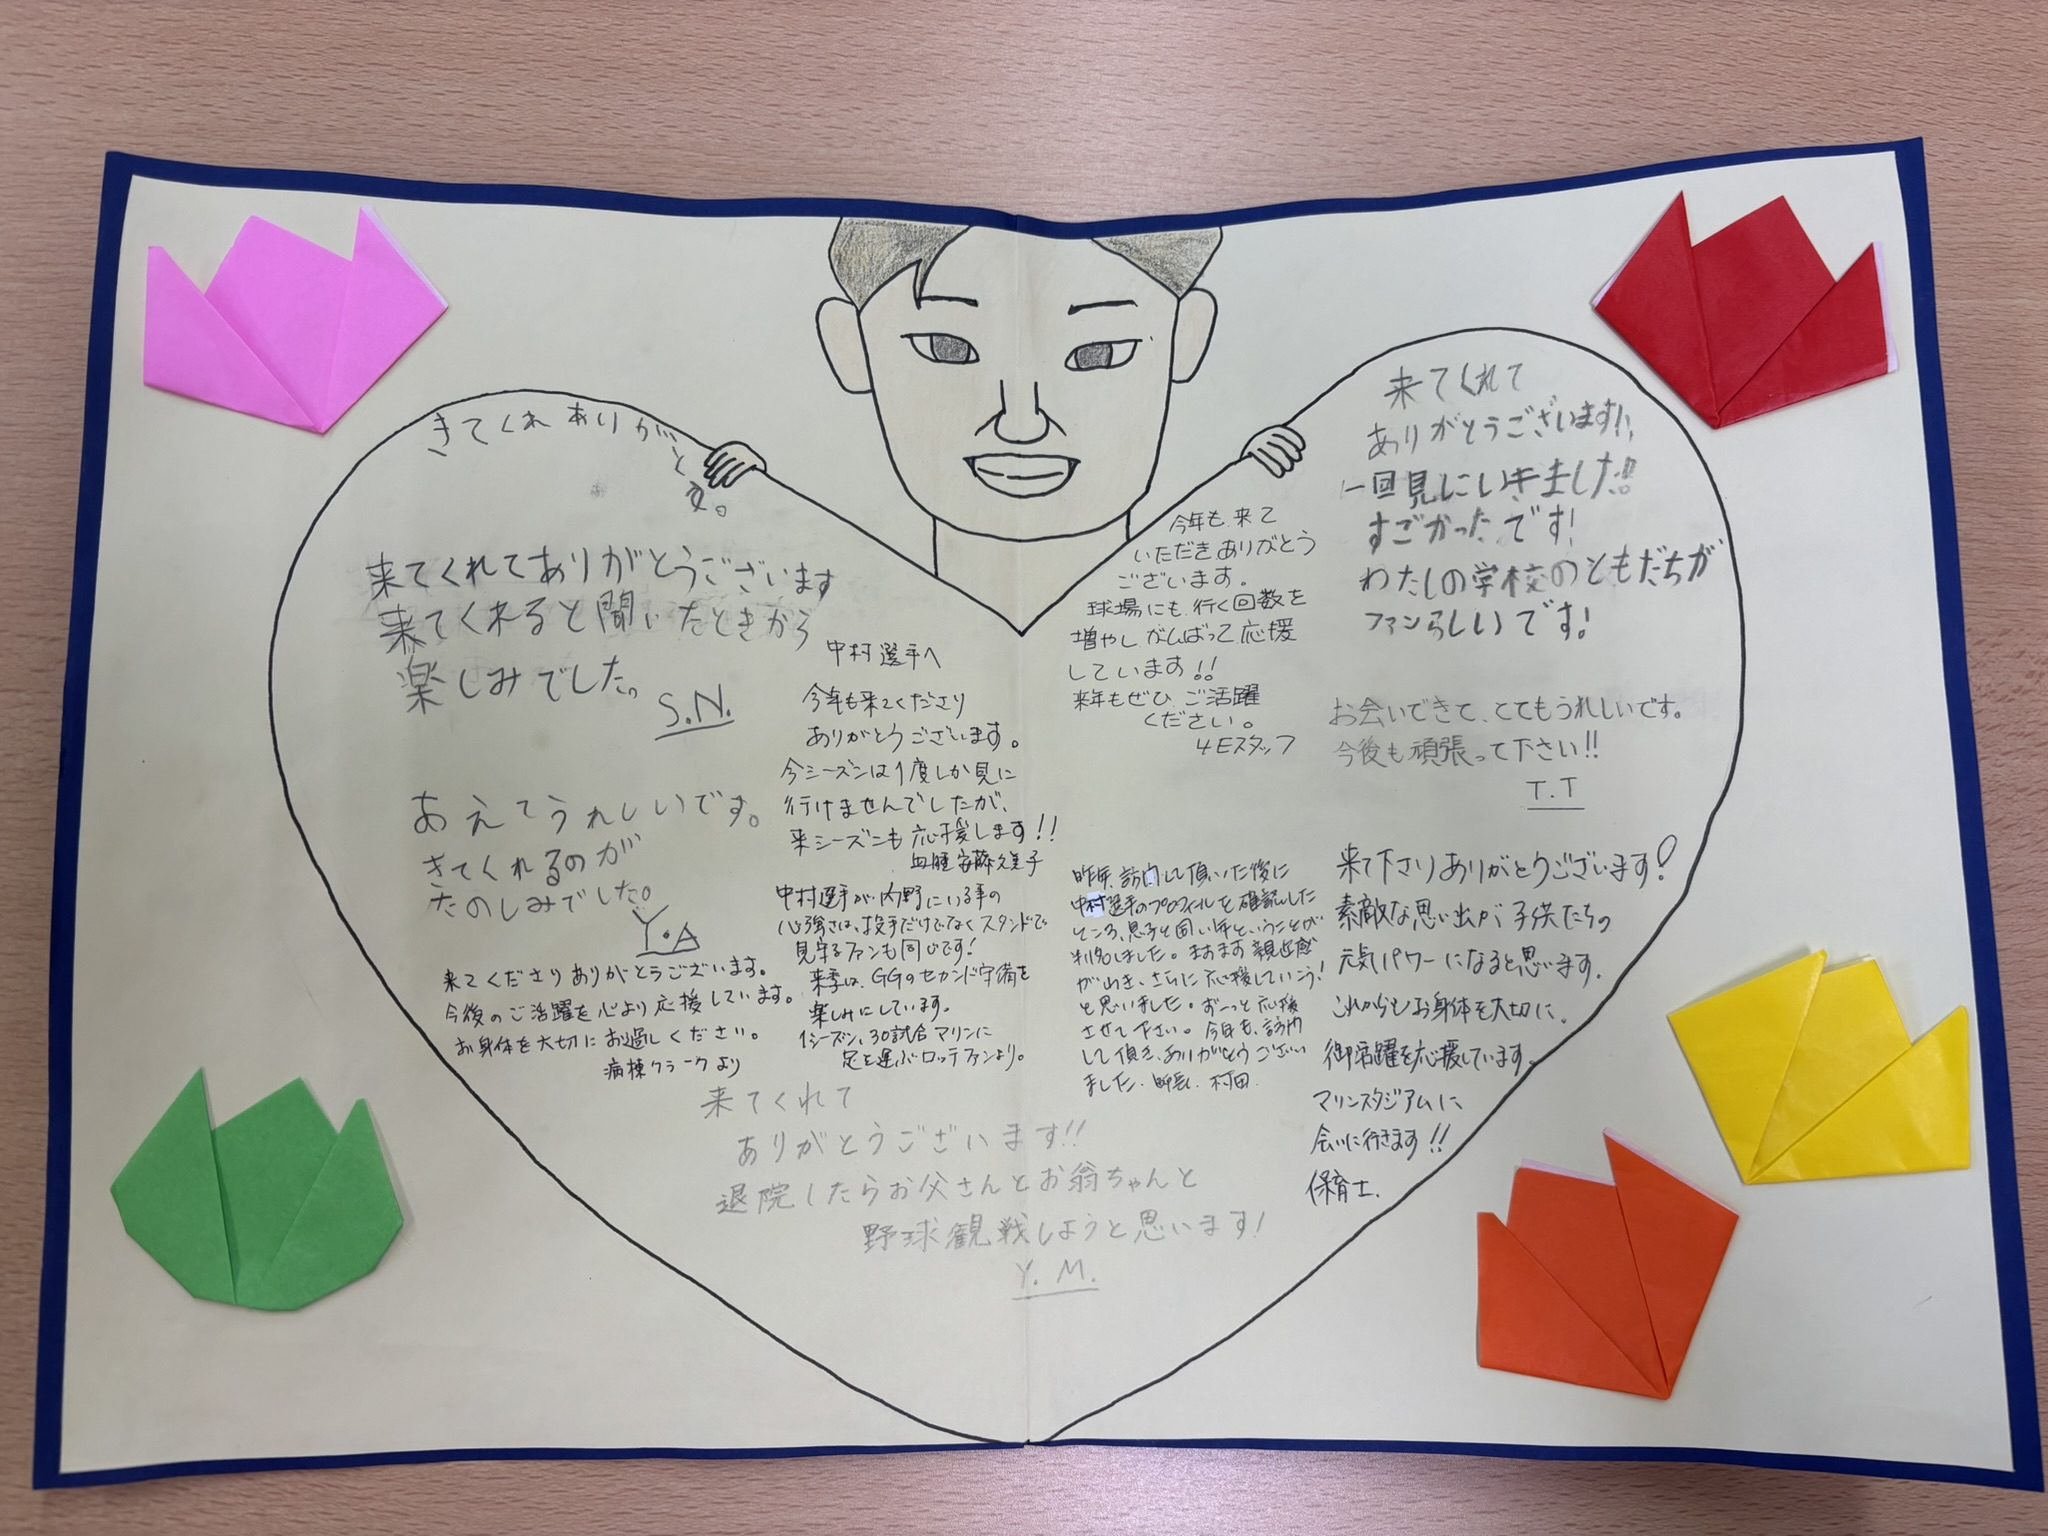 きてくれ ありがとう。
来てくれてありがとうございます
来てくれると聞いたときから
楽しみでした。
S.N.
あえてうれしいです。
きてくれるのが
たのしみでした。
Y.A
来てくださりありがとうございます。
今後のご活躍を心より応援しています。
お身体を大切にお過しください。
病棟クラークより
中村選手へ
今年も来てくださり
ありがとうございます。
今シーズンは1度しか見に
行けませんでしたが、
来シーズンも応援します!!
血腫 安藤久美子
中村選手が内野にいる事の
心強さは、投手だけでなくスタンドで
見守るファンも同じです!
来季は、GGのセカンド守備を
楽しみにしています。
1シーズン、30試合マリンに
足を運ぶロッテファンより。
来てくれて
ありがとうございます!!
退院したらお父さんとお爺ちゃんと
野球観戦しようと思います!
Y.M.
今年も来て
いただきありがとう
ございます。
球場にも行く回数を
増やしがんばって応援
しています!!
来年もぜひご活躍
ください。
4Eスタッフ
昨年、訪問して頂いた後に
中村選手のプロフィールを確認した
ところ、息子と同い年ということが
判明しました。ますます親近感
がわき、さらに応援していこう!
と思いました。ずーっと応援
させて下さい。今年も、訪問
して頂き、ありがとうござい
ました。師長 村田
来てくれて
ありがとうございます!!
一回見にいきました!!
すごかったです!
わたしの学校のともだちが
ファンらしいです!
お会いできて、とてもうれしいです。
今後も頑張って下さい!!
T.T
来て下さりありがとうございます!
素敵な思い出が子供たちの
元気パワーになると思います。
これからもお身体を大切に。
御活躍を応援しています。
マリンスタジアムに
会いに行きます!!
保育士.